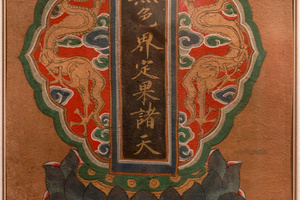 無色界定果諸天